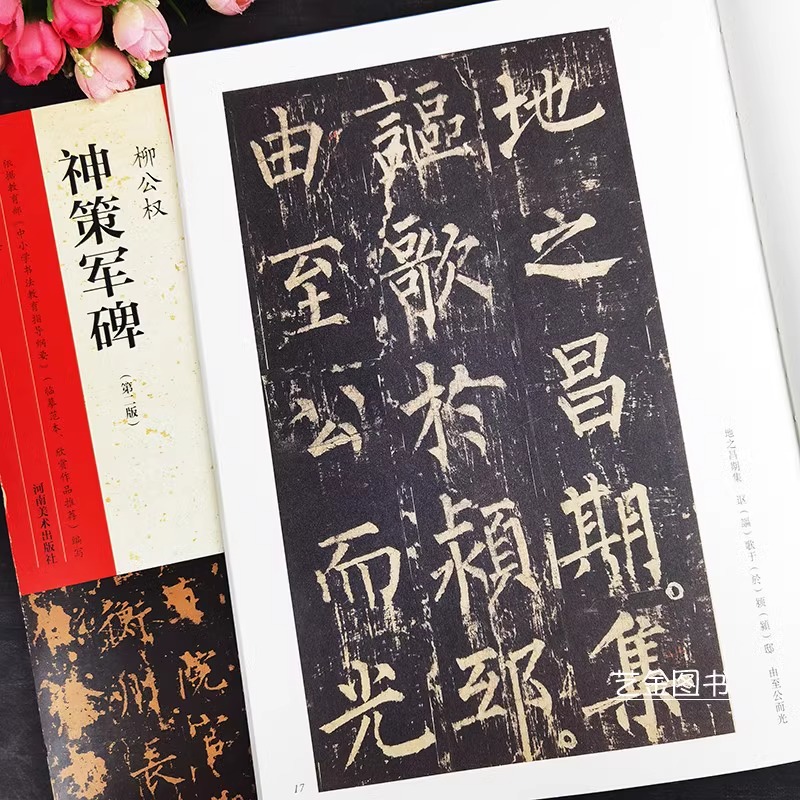 柳公权
神策军碑
(第二版)
依据教育部《中小学书法教育指导纲要》(临摹范本、欣赏作品推荐)编写
河南美术出版社
地之昌期集
謳歌於潁邸
由至公而光
地之昌期集 讴(謳)歌于(於)颍(潁)邸 由至公而光
17
艺金图书